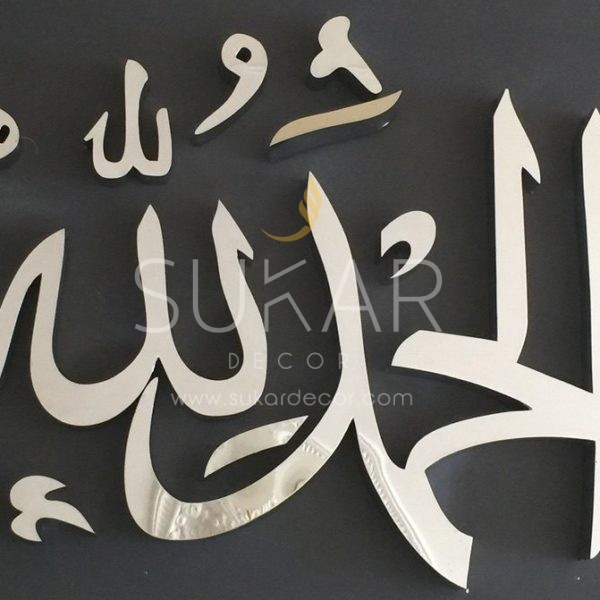 الحمد لله
SUKAR
DECOR
www.sukardecor.com